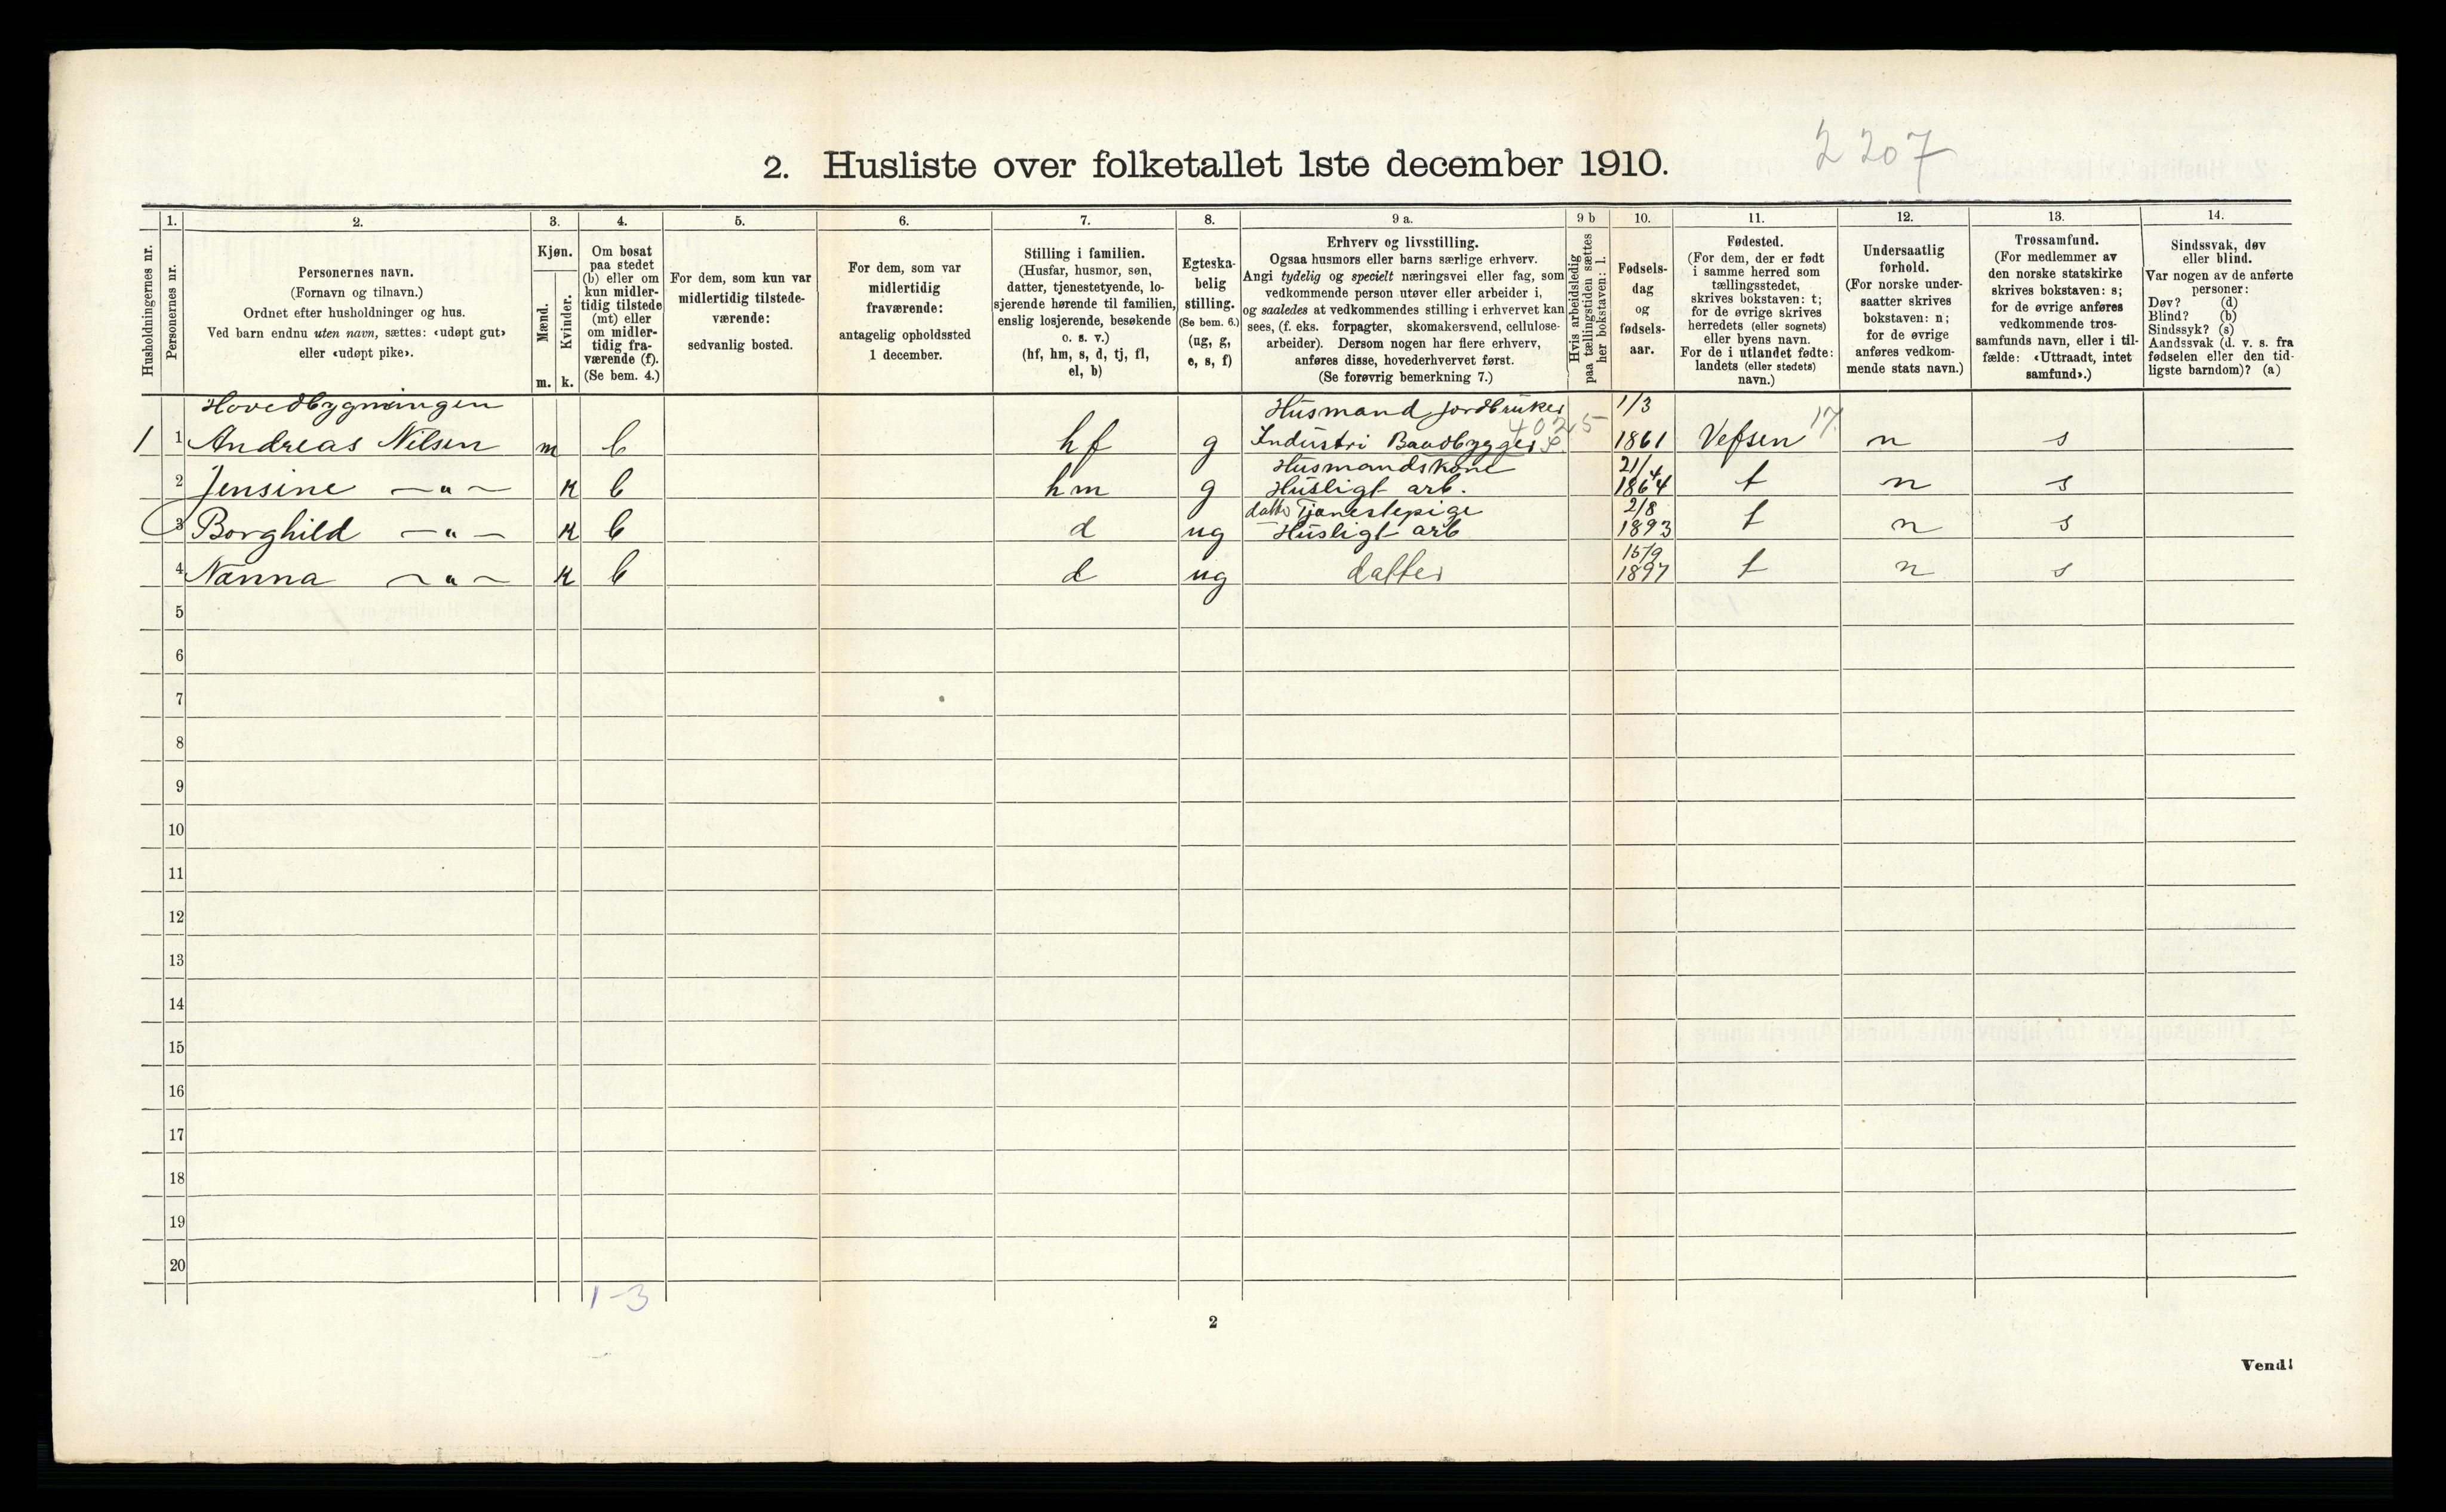 2207
2. Husliste over folketallet 1ste december 1910.
Husholdningernes nr.
1.
Personernes nr.
2.
Personernes navn.
(Fornavn og tilnavn.)
Ordnet efter husholdninger og hus.
Ved barn endnu uten navn, sættes: «udøpt gut»
eller «udøpt pike».
3.
Kjøn.
Mænd.
Kvinder.
m. k.
4.
Om bosat
paa stedet
(b) eller om
kun midler-
tidig tilstede
(mt) eller
om midler-
tidig fra-
værende (f).
(Se bem. 4.)
5.
For dem, som kun var
midlertidig tilstede-
værende:
sedvanlig bosted.
6.
For dem, som var
midlertidig
fraværende:
antagelig opholdssted
1 december.
7.
Stilling i familien.
(Husfar, husmor, søn,
datter, tjenestetyende, lo-
sjerende hørende til familien,
enslig losjerende, besøkende
o. s. v.)
(hf, hm, s, d, tj, fl,
el, b)
8.
Egteska-
belig
stilling.
(Se bem. 6.)
(ug, g,
e, s, f)
9 a.
Erhverv og livsstilling.
Ogsaa husmors eller barns særlige erhverv.
Angi tydelig og specielt næringsvei eller fag, som
vedkommende person utøver eller arbeider i,
og saaledes at vedkommendes stilling i erhvervet kan
sees, (f. eks. forpagter, skomakersvend, cellulose-
arbeider). Dersom nogen har flere erhverv,
anføres disse, hovederhvervet først.
(Se forøvrig bemerkning 7.)
9 b
Hvis arbeidsledig
paa tællingstiden sættes
her bokstaven: l.
10.
Fødsels-
dag
og
fødsels-
aar.
11.
Fødested.
(For dem, der er født
i samme herred som
tællingsstedet,
skrives bokstaven: t;
for de øvrige skrives
herredets (eller sognets)
eller byens navn.
For de i utlandet fødte:
landets (eller stedets)
navn.)
12.
Undersaatlig
forhold.
(For norske under-
saatter skrives
bokstaven: n;
for de øvrige
anføres vedkom-
mende stats navn.)
13.
Trossamfund.
(For medlemmer av
den norske statskirke
skrives bokstaven: s;
for de øvrige anføres
vedkommende tros-
samfunds navn, eller i til-
fælde: «Uttraadt, intet
samfund».)
14.
Sindssvak, døv
eller blind.
Var nogen av de anførte
personer:
Døv? (d)
Blind? (b)
Sindssyk? (s)
Aandssvak (d. v. s. fra
fødselen eller den tid-
ligste barndom)? (a)
Hovedbygningen Husmand jordbruker 1/3
4025 17
1 1 Andreas Nilsen m b hf g Industri Baadbygger 1861 Vefsen n s
Husmandskone 21/4
2 Jensine — " — k b hm g Husligt arb. 1864 t n s
datter Tjenestepige 2/8
3 Borghild — " — k b d ug Husligt arb 1893 t n s
15/9
4 Nanna — " — k b d ug datter 1897 t n s
5
6
7
8
9
10
11
12
13
14
15
16
17
18
19
20
1-3
2
Vend!